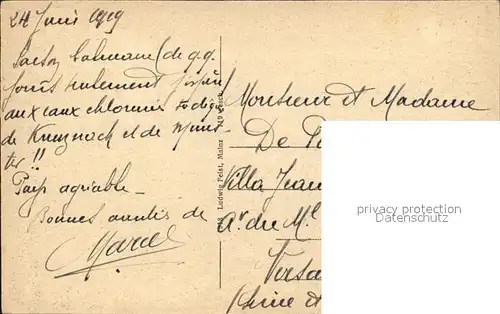 24 Juin 1919
Saison balnéaire (de q.q.
jours seulement
aux eaux chlorurées sodiques
de Kreuznach et de Müns-
ter !!
Pays agréable –
Bonnes amitiés de
Marcel
Ludwig Feist, Mainz
Monsieur et Madame
De
Villa Jean
Av. du Ml
Versa
(Seine et
privacy protection
repro-ansichtskarten